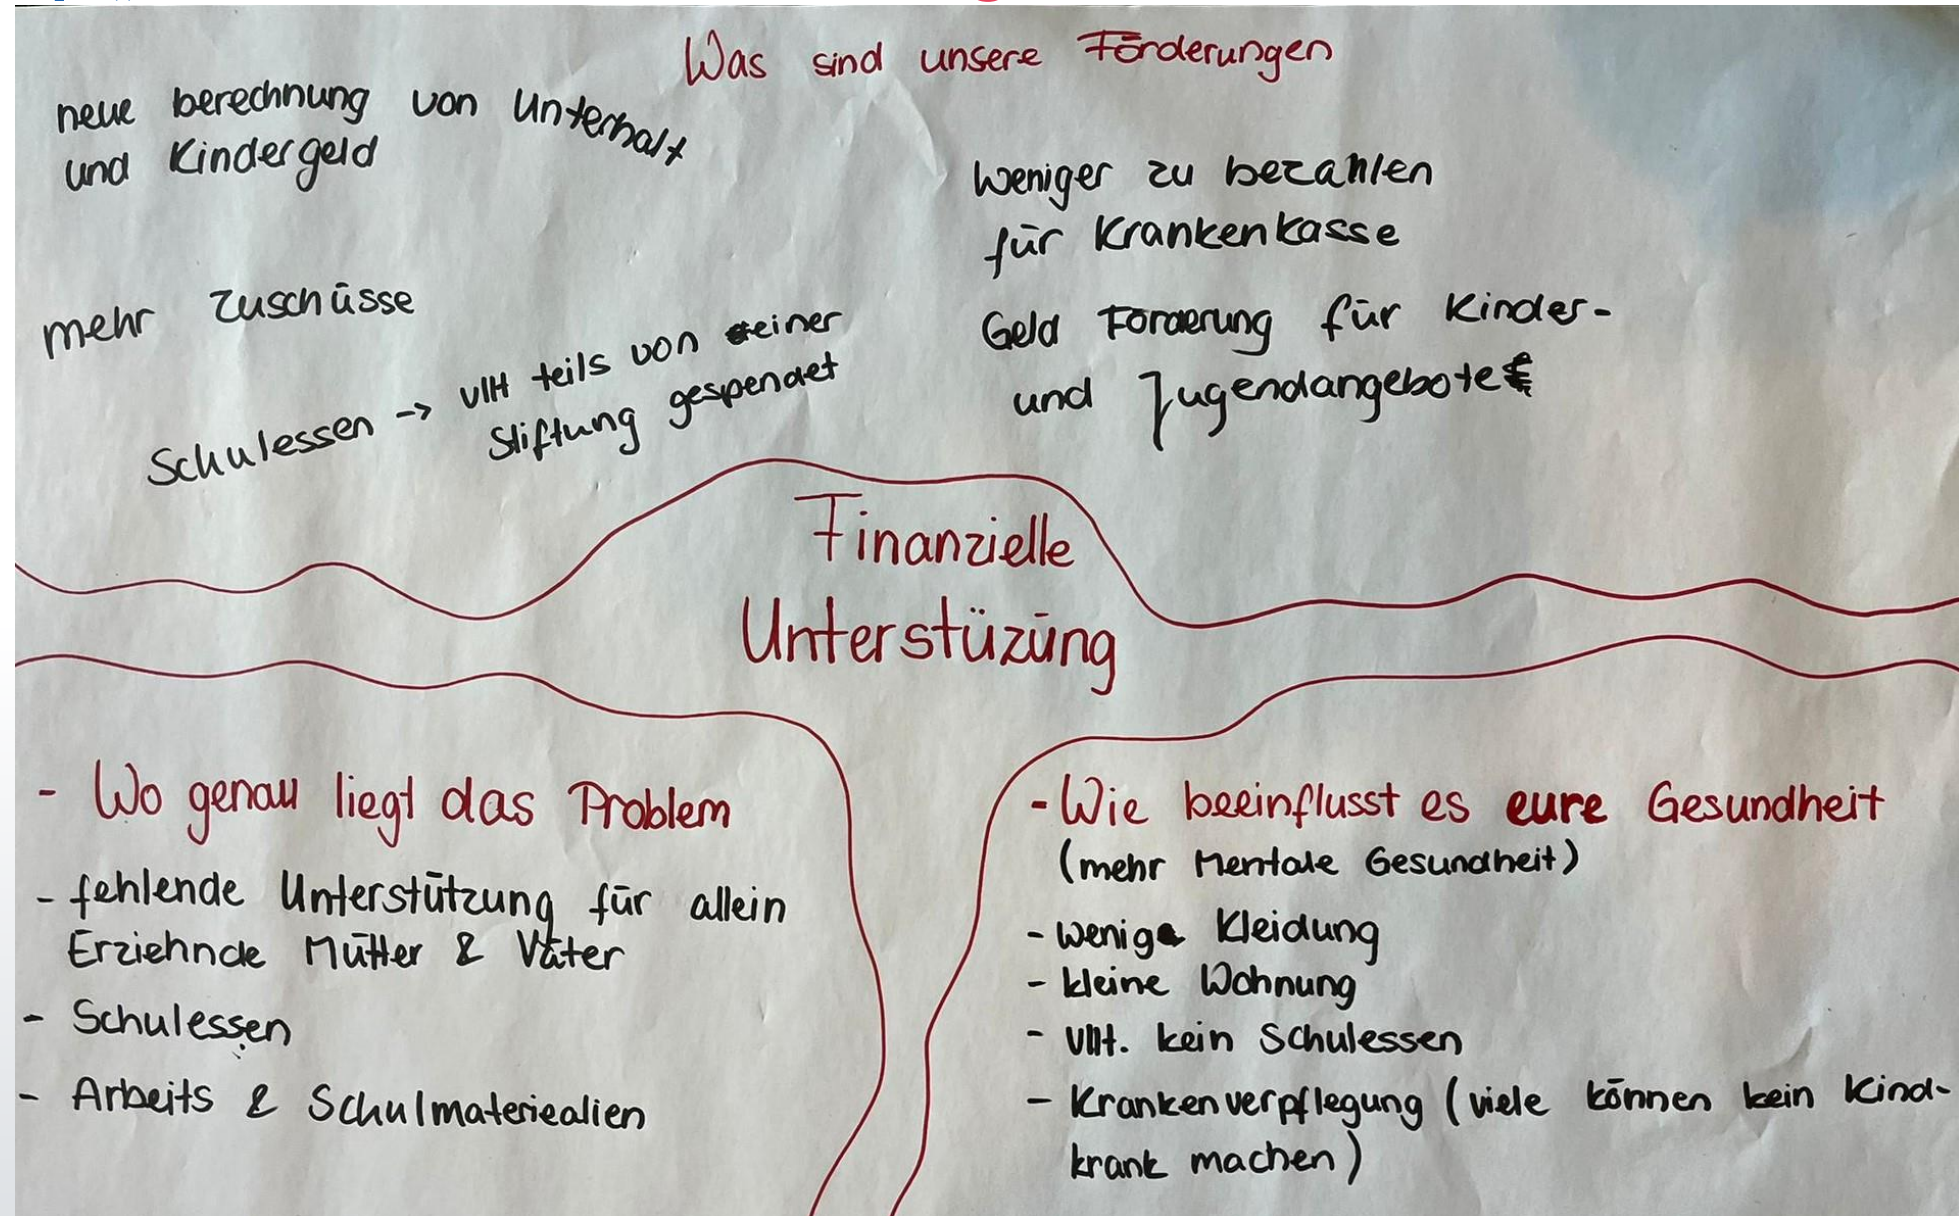 Was sind unsere Förderungen
neue berechnung von Unterhalt
und Kindergeld
mehr Zuschüsse
Schulessen -> vllt teils von einer
Stiftung gespendet
Weniger zu bezahlen
für Krankenkasse
Geld Förderung für Kinder-
und Jugendangebote
Finanzielle
Unterstüzüng
- Wo genau liegt das Problem
- fehlende Unterstützung für allein
Erziehnde Mütter & Väter
- Schulessen
- Arbeits & Schulmateriealien
- Wie beeinflusst es eure Gesundheit
(mehr Mentale Gesundheit)
- wenig Kleidung
- kleine Wohnung
- vllt. kein Schulessen
- Krankenverpflegung (viele können kein Kind-
krank machen)